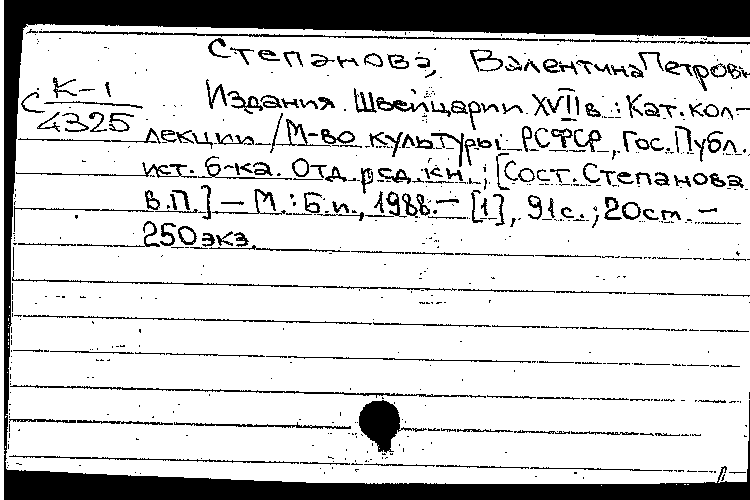 Степанова, Валентина Петровн
К-1
С 4325
Издания Швейцарии XVII в.: Кат. кол-
лекции / М-во культуры РСФСР, Гос. Публ.
ист. б-ка. Отд. ред. кн.; [Сост. Степанова
В.П.] — М.: Б.и., 1988. — [1], 91 с.; 20 см. —
250 экз.